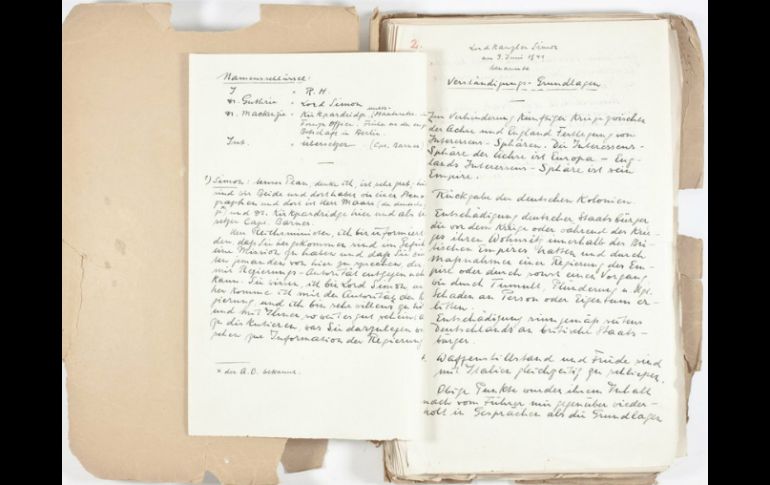 Namensschlüssel:
J = R.H.
Dr. Guthrie = Lord Simon
Dr. Mackenzie = Kirkpardridge (
Foreign Office. Früher an der eng
Botschaft in Berlin.
Int. = Übersetzer (Cpt. Barnes)
1) Simon:
und wir Beide und dort haben wir einen Steno-
graphen und dort ist Herr Maass (
und Dr. Kirkpardridge hier und als
setzer Capt. Barner.
Herr Reichsminister, ich bin informiert
daß Sie hergekommen sind im Gefühl
eine Mission zu haben und daß Sie
jemanden von hier zu sprechen
mit Regierungs-Autorität entgegen
kann. Sie wissen, ich bin Lord Simon
komme ich mit der Autorität der
gierung, und ich bin sehr willens
und mit Ihnen, so weit es gut scheint,
zu diskutieren, was Sie darzulegen
zur Information der Regierung
* der A.O. bekannt.
2.
Lordkanzler Simon
am 9. Juni 1941
Verständigungs-Grundlagen
Zur Verhinderung künftiger Kriege zwischen
der Achse und England Festlegung von
Interessen-Sphären. Die Interessens-
Sphäre der Achse ist Europa - Eng-
lands Interessens-Sphäre ist sein
Empire.
Rückgabe der deutschen Kolonien.
Entschädigung deutscher Staatsbürger
die vor dem Kriege oder während des Krie-
ges ihren Wohnsitz innerhalb des Bri-
tischen Empires hatten und durch
Maßnahmen einer Regierung des Em-
pire oder durch sonst einen Vorgang
wie durch Tumult, Plünderung u. dgl.
Schaden an Person oder Eigentum er-
litten.
Entschädigung sinngemäß seitens
Deutschlands an britische Staats-
bürger.
Waffenstillstand und Friede sind
mit Italien gleichzeitig zu schliessen.
Obige Punkte wurden ihrem Inhalt
nach vom Führer mir gegenüber wieder-
holt in Gesprächen als die Grundlagen